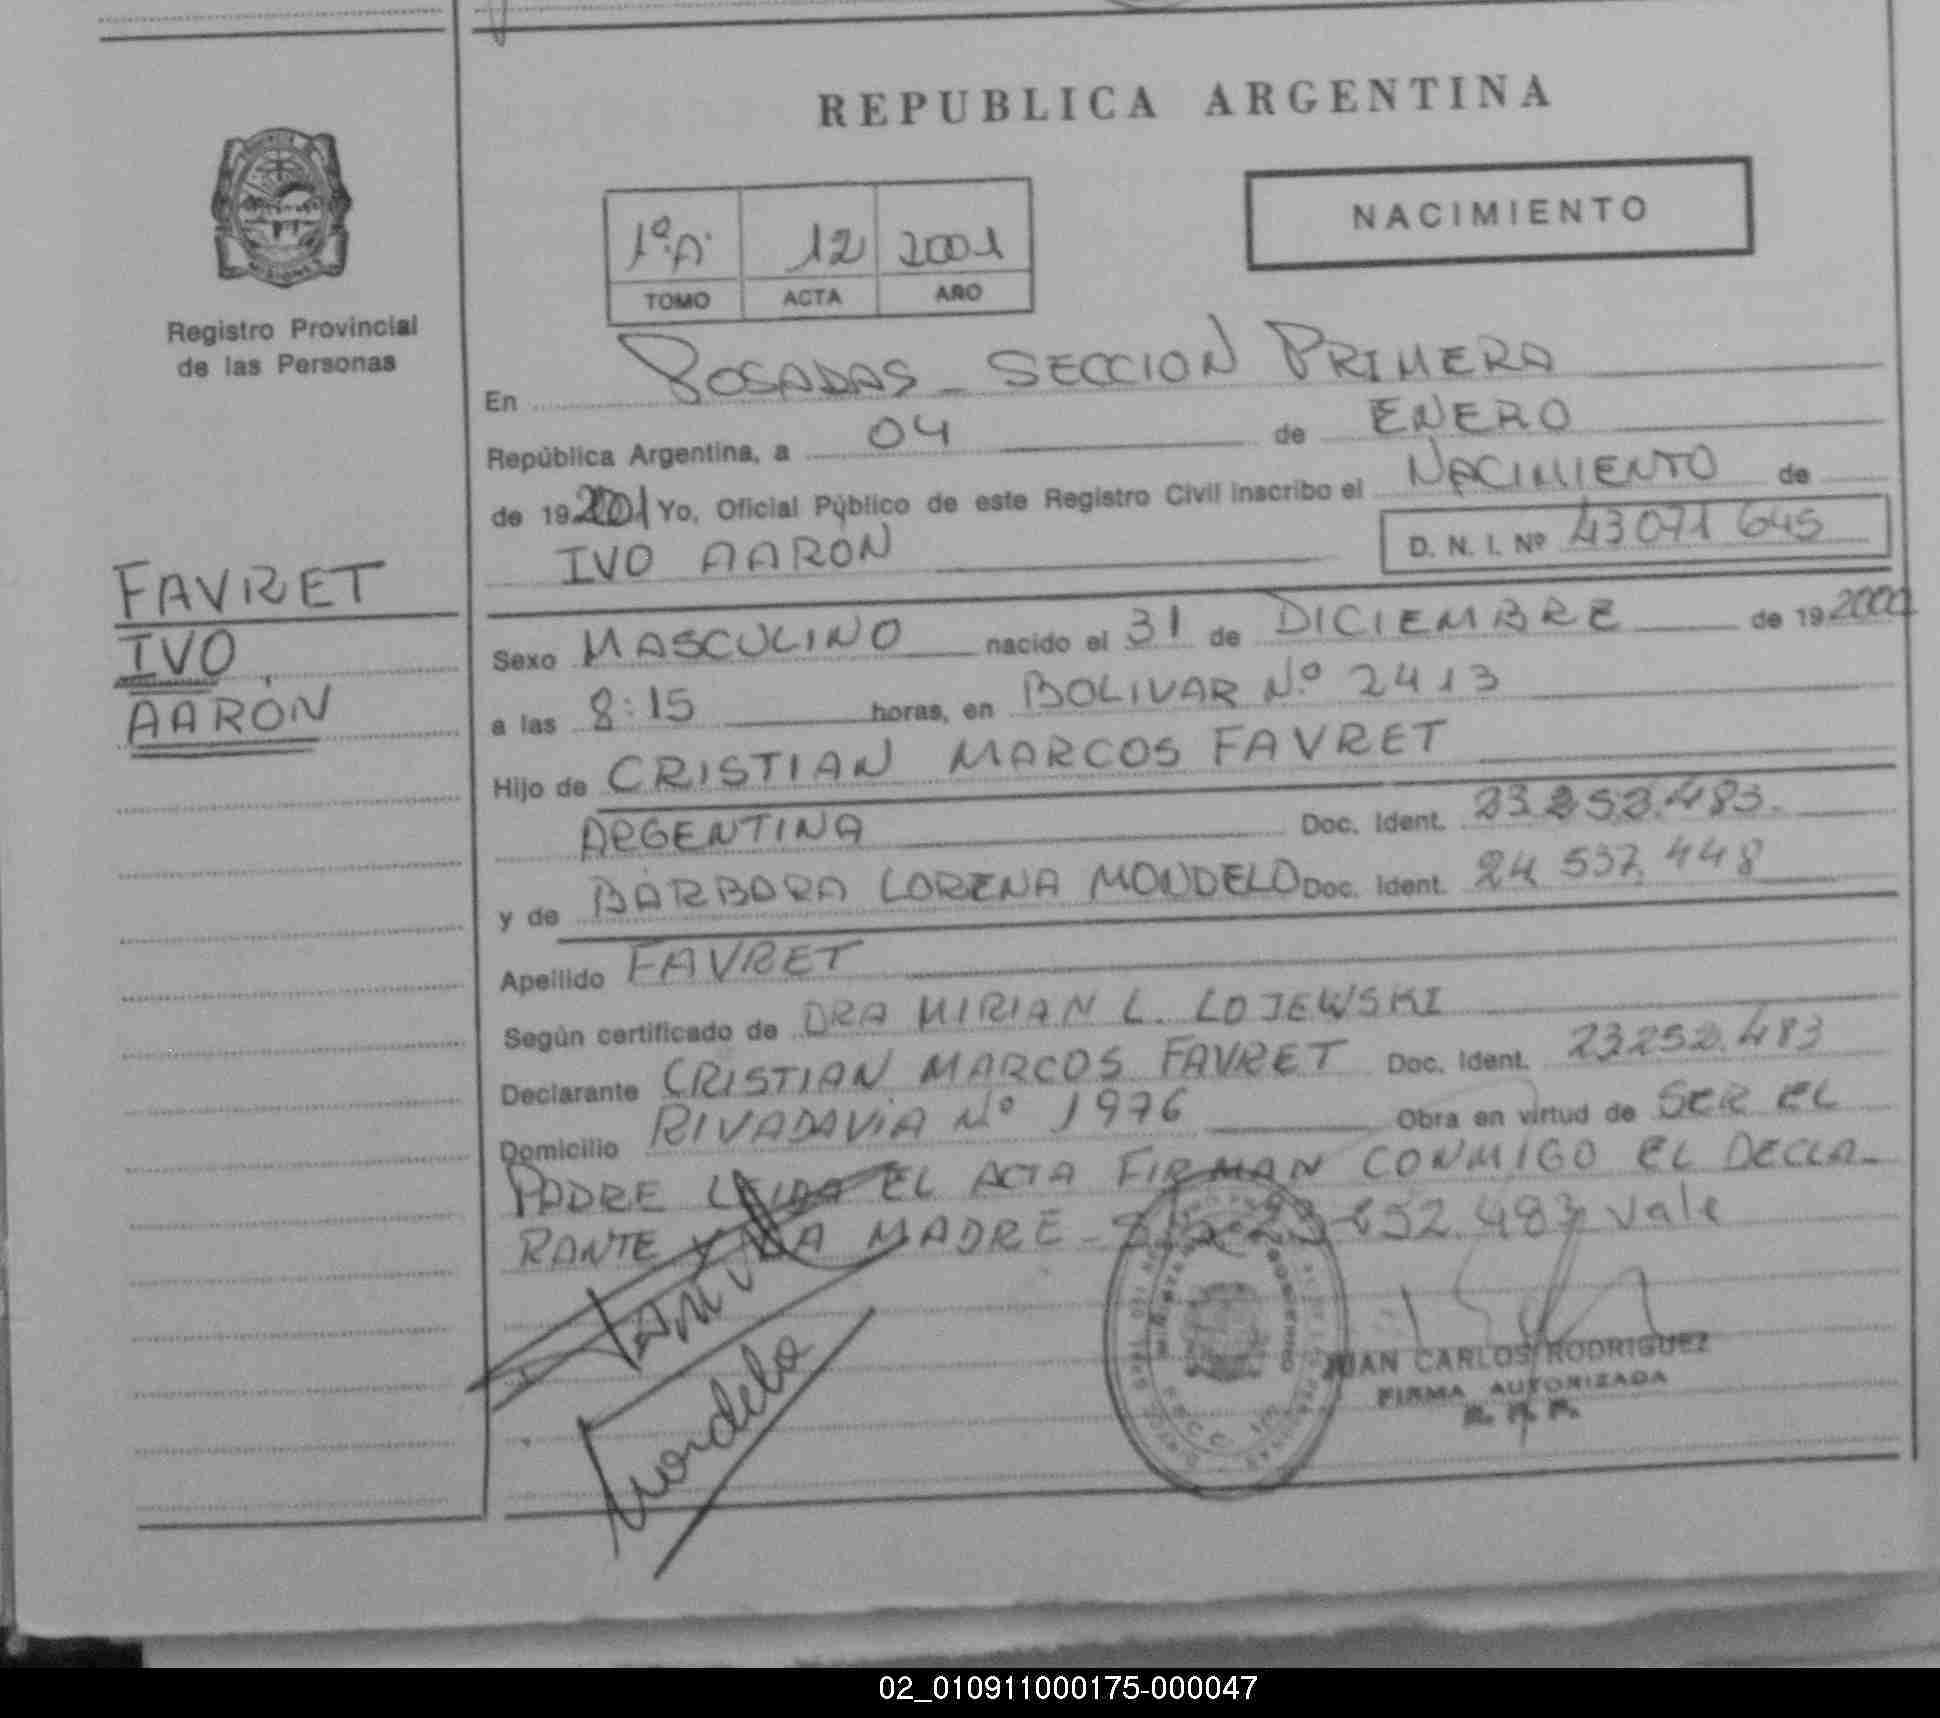 REPUBLICA ARGENTINA
NACIMIENTO
1º A 12 2001
TOMO ACTA AÑO
Registro Provincial
de las Personas
En POSADAS - SECCION PRIMERA
República Argentina, a 04 de ENERO
de 19 2001 Yo, Oficial Público de este Registro Civil inscribo el NACIMIENTO de
IVO AARÓN D. N. I. Nº 43071645
FAVRET
IVO
AARÓN
Sexo MASCULINO nacido el 31 de DICIEMBRE de 19 2000
a las 8:15 horas, en BOLIVAR Nº 2413
Hijo de CRISTIAN MARCOS FAVRET
ARGENTINA Doc. Ident. 23.252.483.
y de BÁRBARA LORENA MONDELO Doc. Ident. 24 537.448
Apellido FAVRET
Según certificado de DRA MIRIAN L. LOJEWSKI
Declarante CRISTIAN MARCOS FAVRET Doc. Ident. 23252.483
Domicilio RIVADAVIA Nº 1976 Obra en virtud de SER EL
PADRE LEIDA EL ACTA FIRMAN CONMIGO EL DECLA-
RANTE Y LA MADRE - 23-252.483 vale
Mondelo
JUAN CARLOS RODRIGUEZ
FIRMA AUTORIZADA
02_010911000175-000047